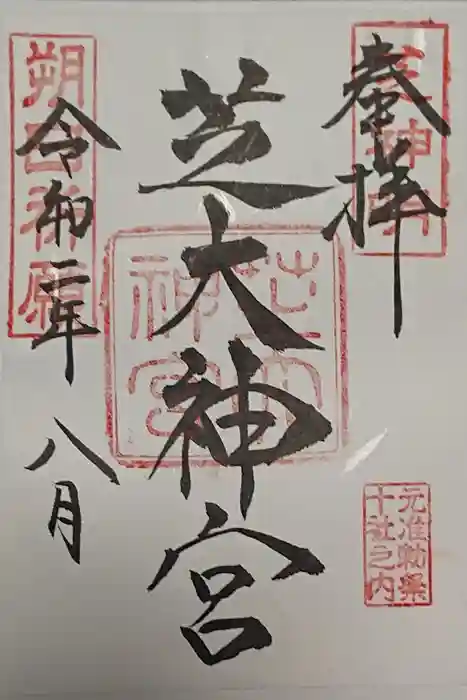 奉拝
芝大神宮
芝大
神宮
朔日御願
令和二年
八月
元准勅祭
十社之内